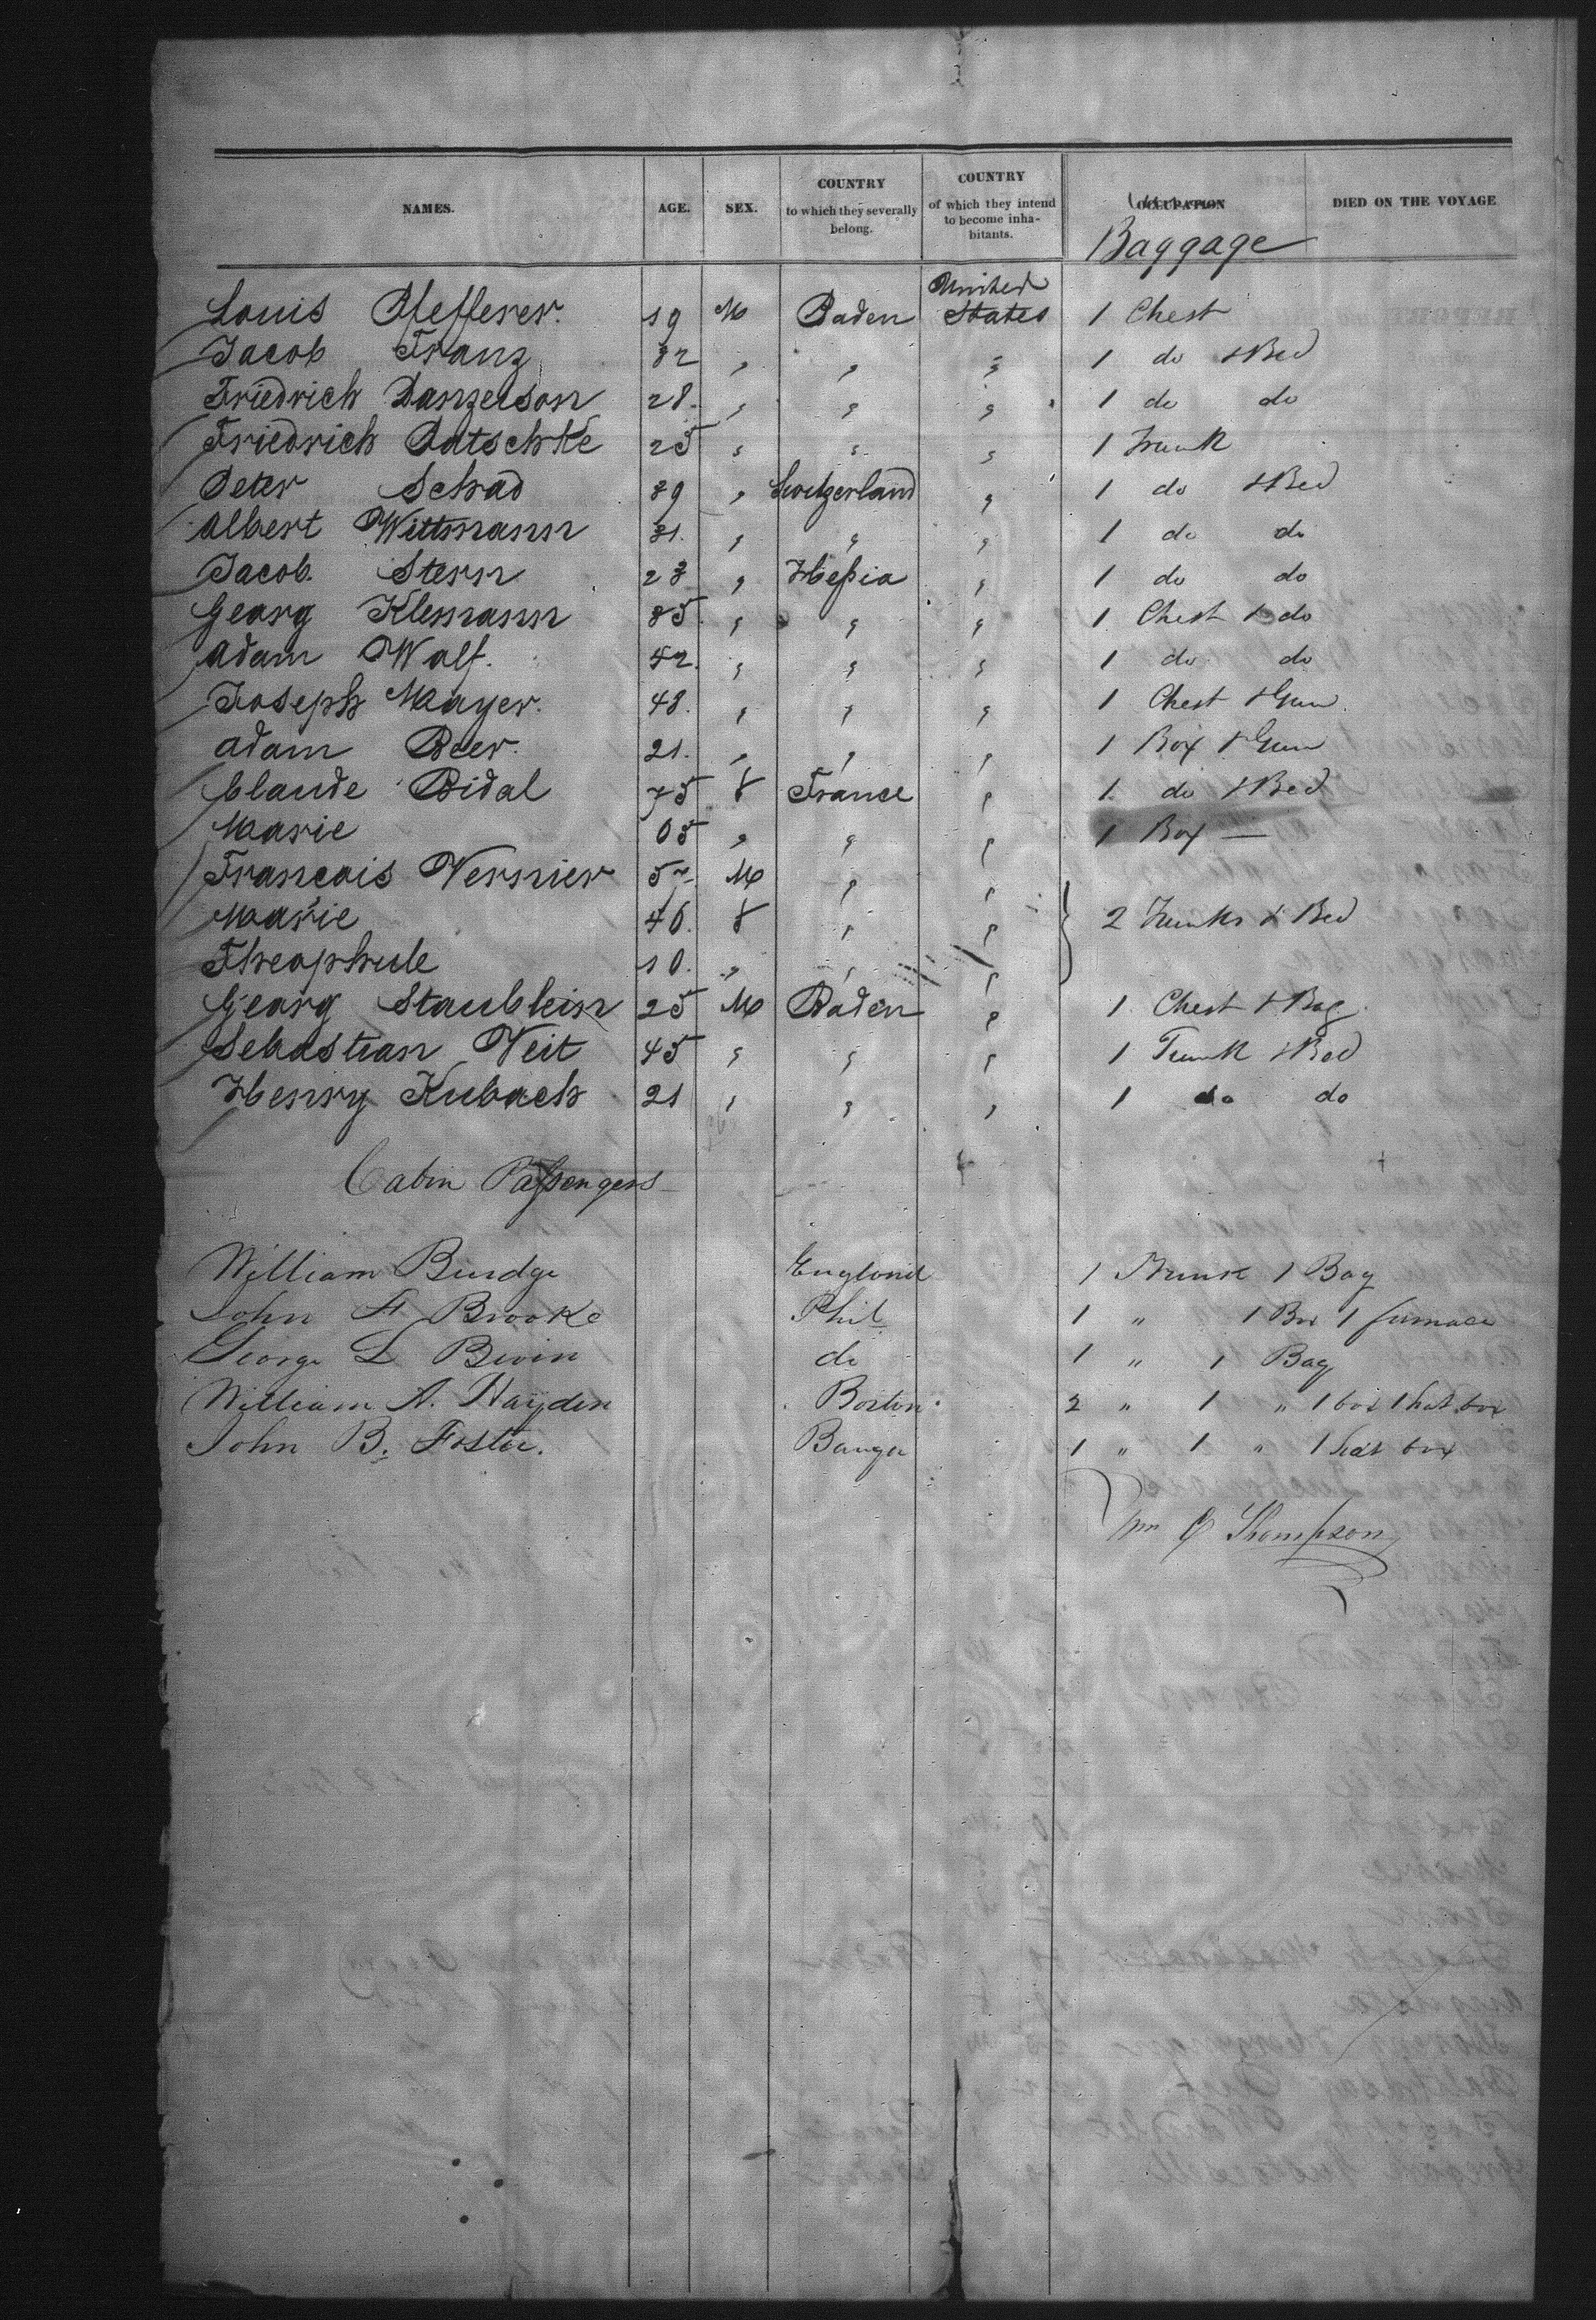 NAMES. AGE. SEX. COUNTRY to which they severally belong. COUNTRY of which they intend to become inhabitants. OCCUPATION DIED ON THE VOYAGE
Baggage
Louis Pfefferer. 19 M Baden United States 1 Chest
Jacob Franz 32 " " " 1 do & Bed
Friedrich Danzeison 28. " " " 1 do do
Friedrich Patschke 25 " " " 1 Trunk
Peter Schad 39 " Switzerland " 1 do & Bed
Albert Wittmann 31. " " " 1 do do
Jacob Stern 23 " Heßia " 1 do do
Georg Klemann 35 " " " 1 Chest & do
Adam Wolf. 42. " " " 1 do do
Joseph Mayer. 43. " " " 1 Chest & Gun.
Adam Beer. 21. " " " 1 Box & Gun
Claude Bidal 75 f France " 1 do & Bed
Marie 65 " " " 1 Box —
Francois Vernier 52 M " "
Marie 46. f " " 2 Trunks & Bed
Theophule 10. " " "
Georg Staublein 25 M Baden " 1 Chest & Bag.
Sebastian Veit 45 " " " 1 Trunk & Bed
Henry Kubach 21 " " " 1 do do
Cabin Paßengers
William Burdge England 1 Trunk 1 Bag
John F Brooke Phil 1 " 1 Box 1 furnace
George L Bevin do 1 " 1 Bag
William A. Hayden Boston 2 " 1 " 1 box 1 hat box
John B. Foster. Bangor 1 " 1 " 1 hat box
Wm C Thompson